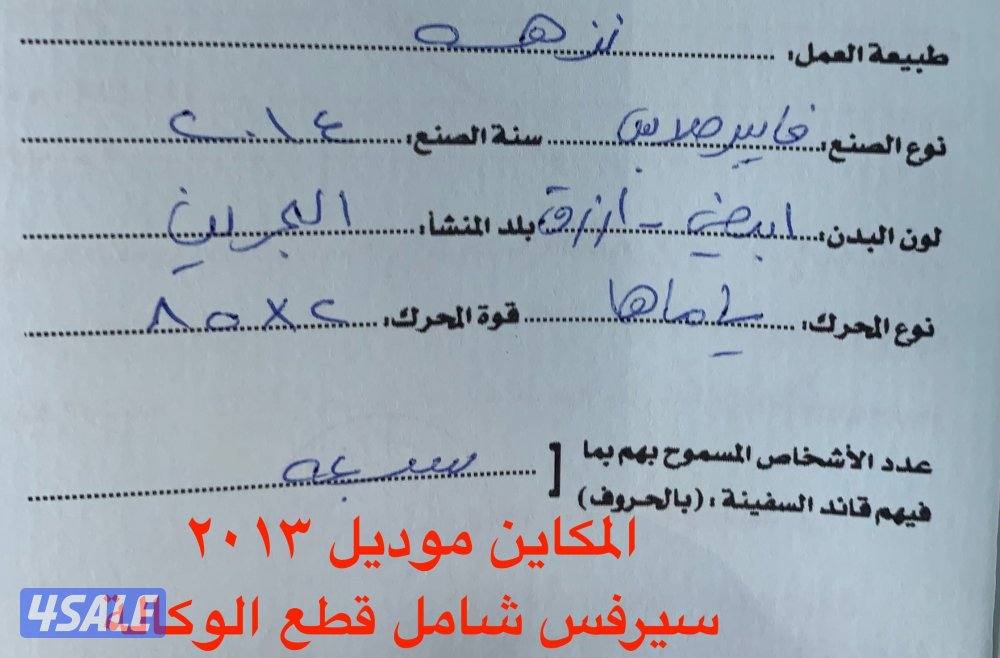 طبيعة العمل: نزهه
نوع الصنع: فايبر جلاس سنة الصنع: ٢٠١٤
لون البدن: ابيض - ازرق بلد المنشأ: البحرين
نوع المحرك: ياماها قوة المحرك: ٨٥×٢
عدد الأشخاص المسموح بهم بما
فيهم قائد السفينة: (بالحروف) [ سبعه
المكاين موديل ٢٠١٣
سيرفس شامل قطع الوكالة
4SALE